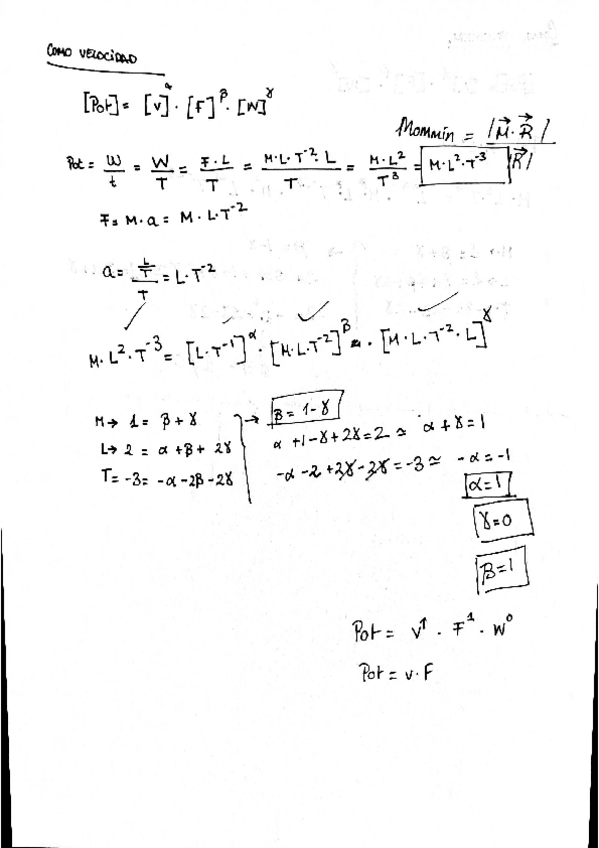 COMO VELOCIDAD
[Pot] = [V]^α · [F]^β · [W]^γ
Mommín = |M⃗·R⃗| / |R⃗|
Pot = W/t = W/T = F·L/T = M·L·T^-2·L/T = M·L^2/T^3 = M·L^2·T^-3
F = M·a = M·L·T^-2
a = (L/T)/T = L·T^-2
M·L^2·T^-3 = [L·T^-1]^α · [M·L·T^-2]^β · [M·L·T^-2·L]^γ
M→ 1 = β+γ → β = 1-γ
L→ 2 = α+β+2γ α+1-γ+2γ=2 ≃ α+γ=1
T= -3= -α-2β-2γ -α-2+2γ-2γ=-3 ≃ -α=-1
α=1
γ=0
β=1
Pot = V^1 · F^1 · W^0
Pot = v·F